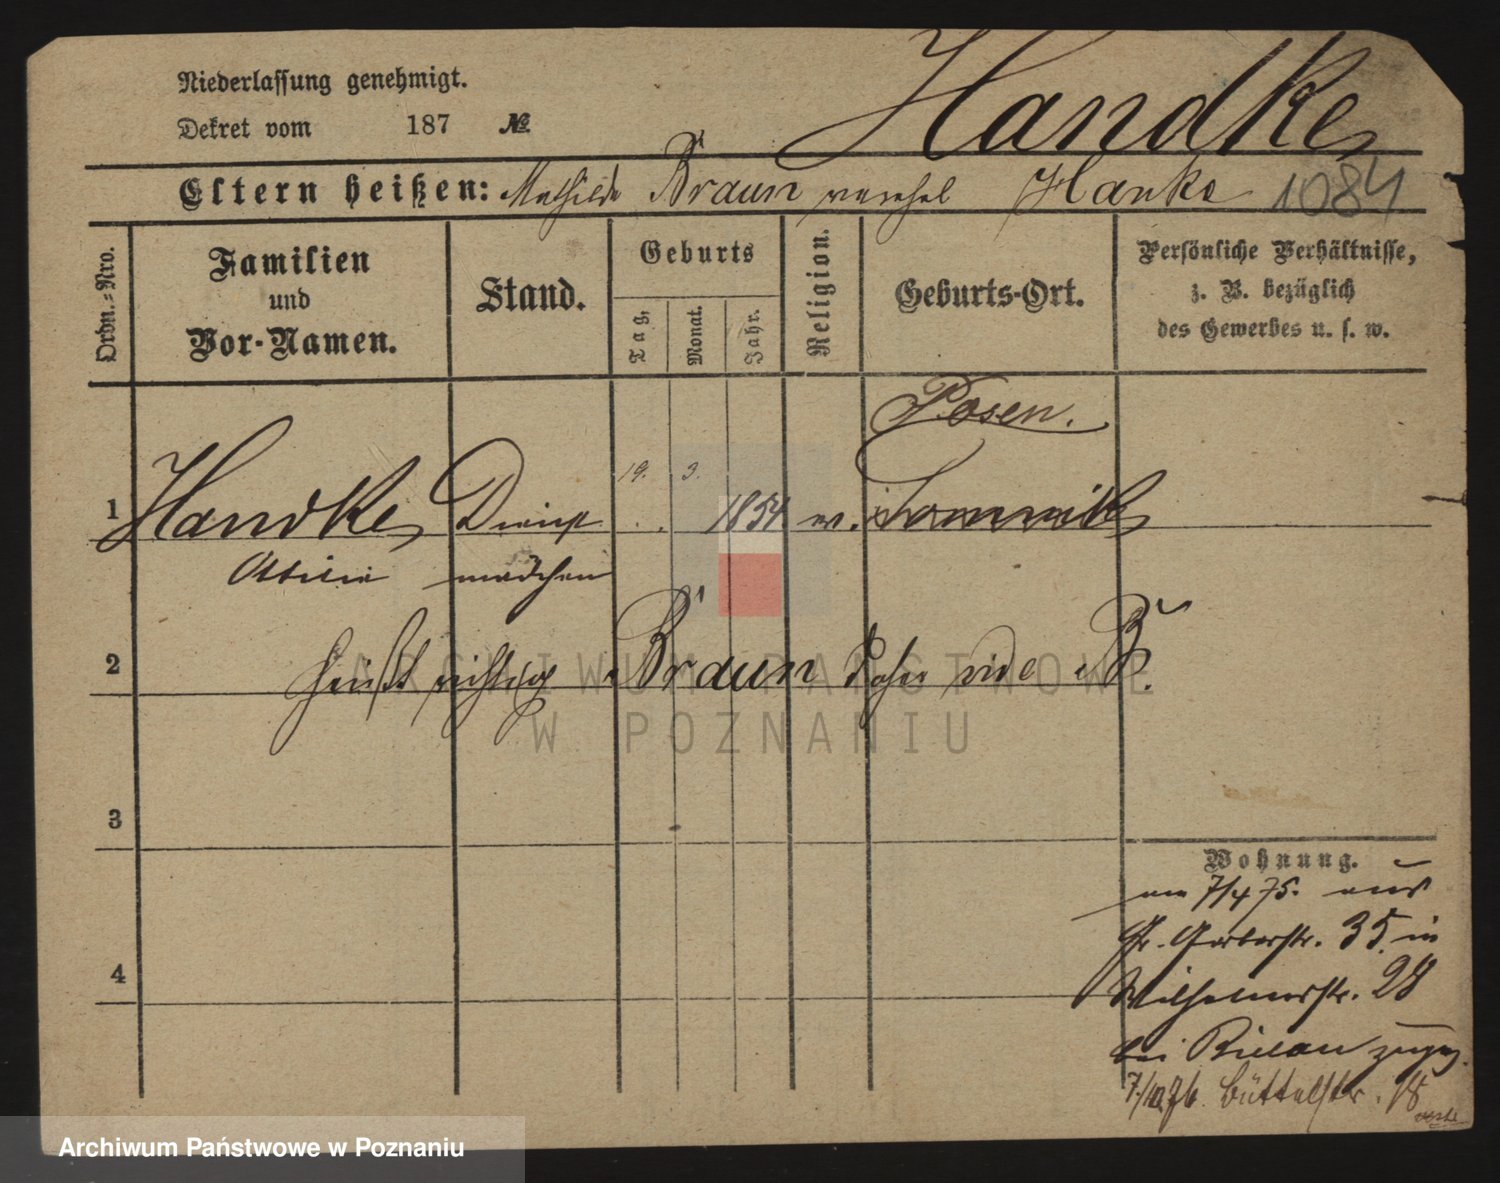 Niederlassung genehmigt.
Dekret vom 187 №
Handke
Eltern heißen: Mathilde Braun verehel Hanke 1084
Ordn.-Nro.
Familien und Vor-Namen.
Stand.
Geburts
Tag.
Monat.
Jahr.
Religion.
Geburts-Ort.
Persönliche Verhältnisse,
z. B. bezüglich
des Gewerbes u. s. w.
Posen.
1 Handke Dienst 19. 3. 1854
mädchen
2 heißt richtig Braun daher vide B.
3
4
Wohnung.
am 7/4 75. aus
Gr. Gerberstr. 35. in
Wilhelmsstr. 28
bei zugez.
76. Büttelstr. 18
ARCHIWUM PAŃSTWOWE
W POZNANIU
Archiwum Państwowe w Poznaniu